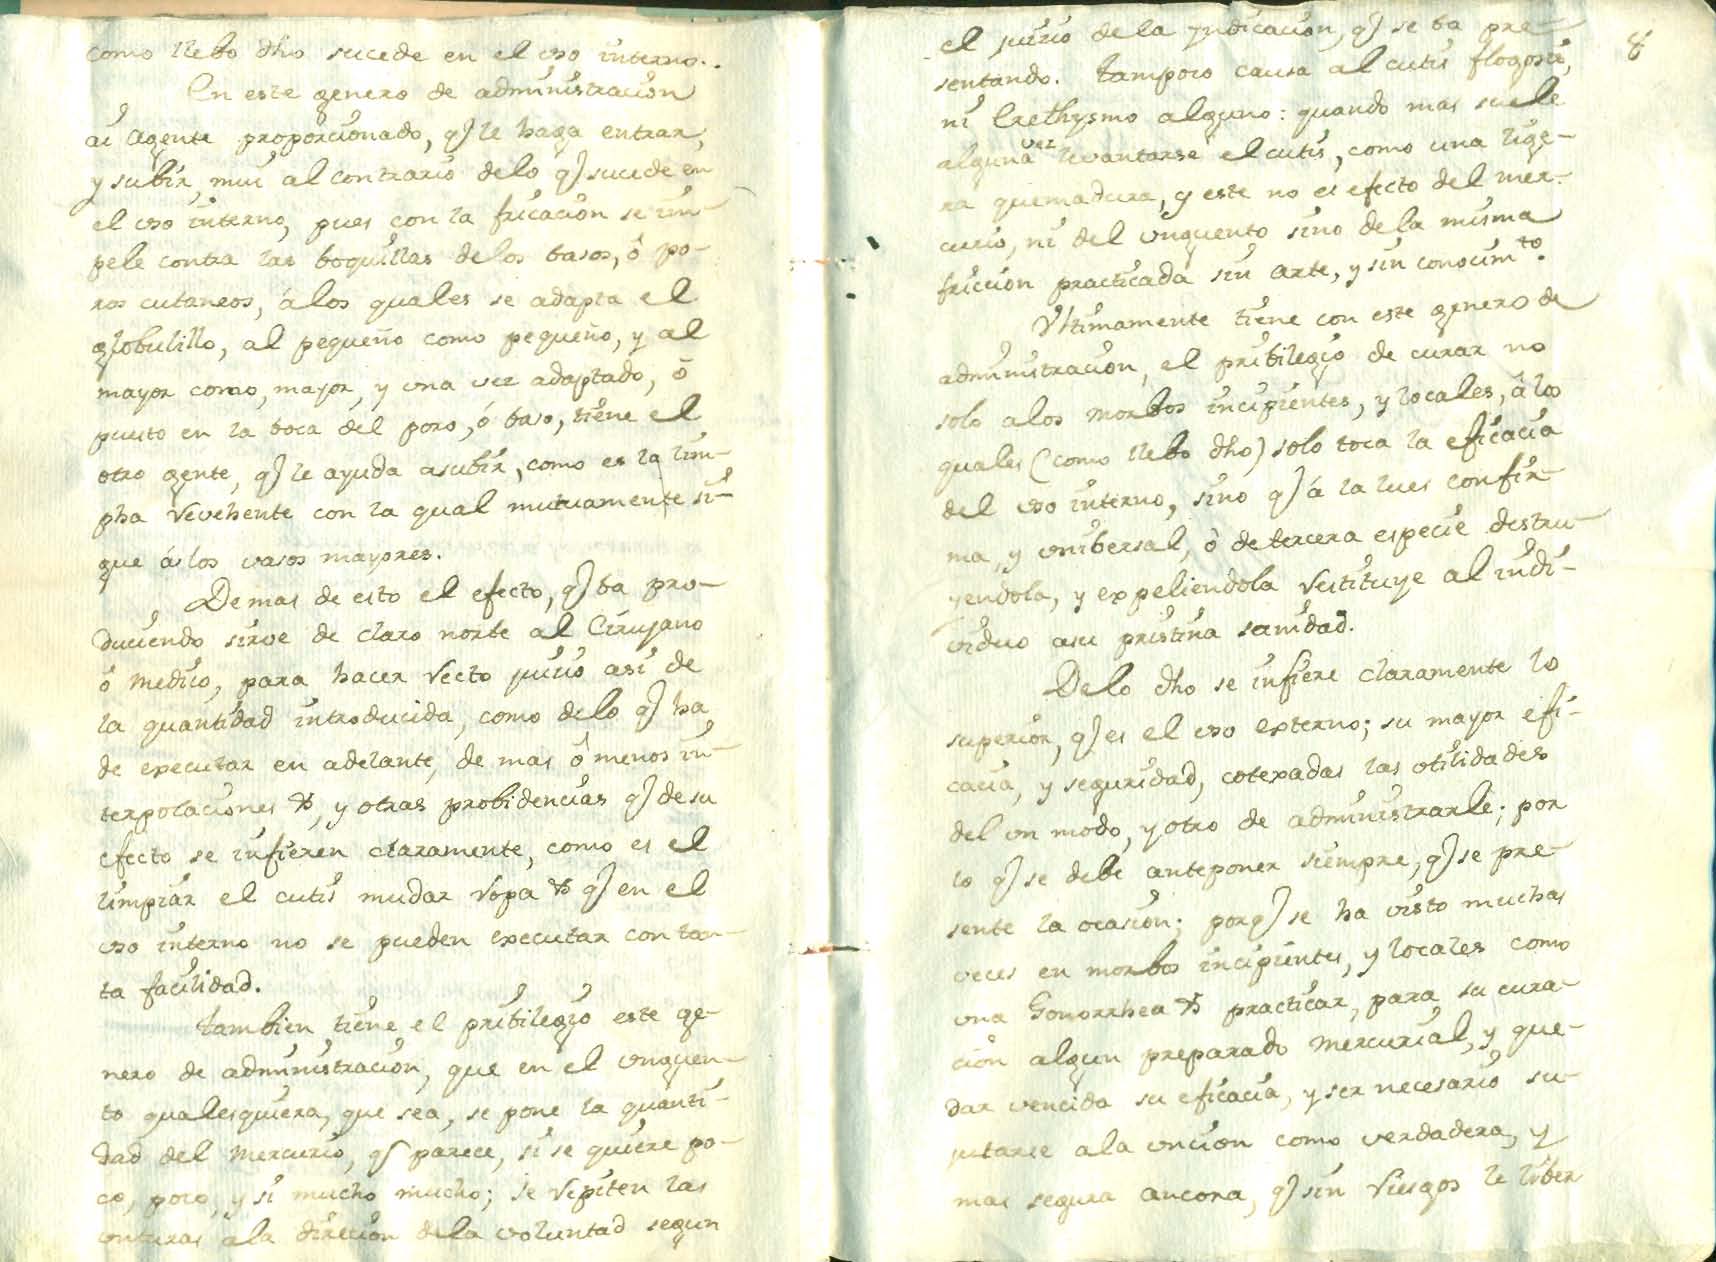 como llebo dho sucede en el vso interno..
En este genero de administracion
ai Agente proporcionado, q) le haga entrar,
y subir, mui al contrario delo q) sucede en
el vso interno, pues con la fricacion se im-
pele contra las boquillas delos basos, ò po-
ros cutaneos, álos quales se adapta el
globulillo, al pequeño como pequeño, y al
mayor como, mayor, y vna vez adaptado, ó
puesto en la boca del poro, ó baso, tiene el
otro agente, q) le ayuda asubir, como es la lim-
pha vevehente con la qual mutuamente si-
gue á los vasos mayores.
Demas de esto el efecto, q) ba pro-
duciendo sirve de claro norte al Cirujano
ò Medico, para hacer recto juicio asi de
la quantidad introducida, como delo q) ha
de executar en adelante, de mas ò menos in-
terpolaciones &, y otras probidencias q) de su
efecto se infieren claramente, como es el
limpiar el cutis mudar ropa & q) en el
vso interno no se pueden executar con tan-
ta facilidad.
Tambien tiene el pribilegio este ge-
nero de administracion, que en el vnguen-
to qualesquiera, que sea, se pone la quanti-
dad del Mercurio, q) parece, si se quiere po-
co, poco, y si mucho mucho; se repiten las
vnturas ála direccion dela voluntad segun
8
el juicio de la yndicacion, q) se ba pre-
sentando. Tampoco causa al cutis flogosis,
ni Erethysmo alguno: quando mas suele
alguna vez levantarse el cutis, como una lige-
ra quemadura, y este no es efecto del mer-
curio, ni del vnguento sino dela misma
friccion practicada sin arte, y sin conocimto.
Vltimamente tiene con este genero de
administracion, el pribilegio de curar no
solo alos Morbos incipientes, y locales, álos
quales (como llebo dho) solo toca la eficacia
del vso interno, sino q) á la lues confir-
ma, y vnibersal, ò de tercera especie destru-
yendola, y expeliendola restituye al indi-
viduo asu pristina sanidad.
Delo dho se infiere claramente lo
superior, q) es el vso externo; su mayor efi-
cacia, y seguridad, cotexadas las vtilidades
del vn modo, y otro de administrarle; por
lo q) se debe anteponer siempre, q) se pre-
sente la ocasion; porq) se ha visto muchas
veces en morbos incipientes, y locales como
vna Gonorrhea & practicar, para su cura-
cion algun preparado Mercurial, y que-
dar vencida su eficacia, y ser necesario su-
jetarse ala vncion como verdadera, y
mas segura ancora, q) sin riesgos le liber